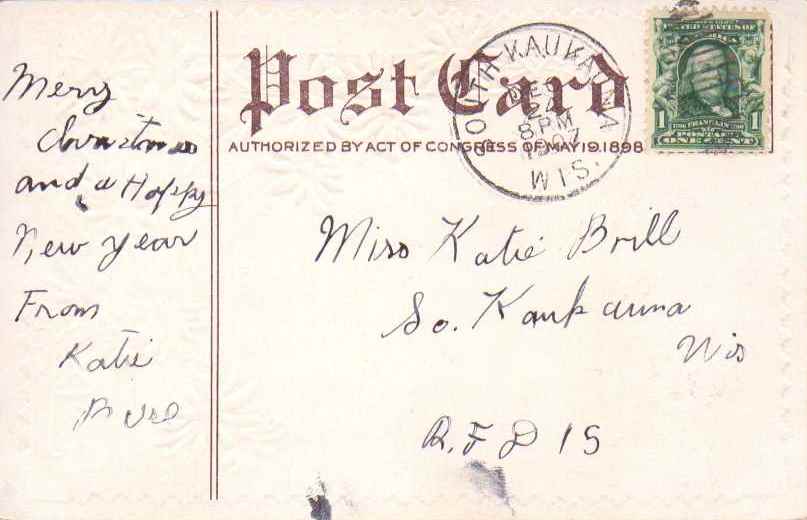 Post Card
AUTHORIZED BY ACT OF CONGRESS OF MAY 19. 1898
SOUTH KAUKAUNA
DEC
2
8 PM
1907
WIS.
UNITED STATES OF
AMERICA
1 FRANKLIN 1
POSTAGE
ONE CENT
Merry
and a Happy
New year
From
Katie
Miss Katie Brill
So. Kaukauna
Wis
R.F.D 15